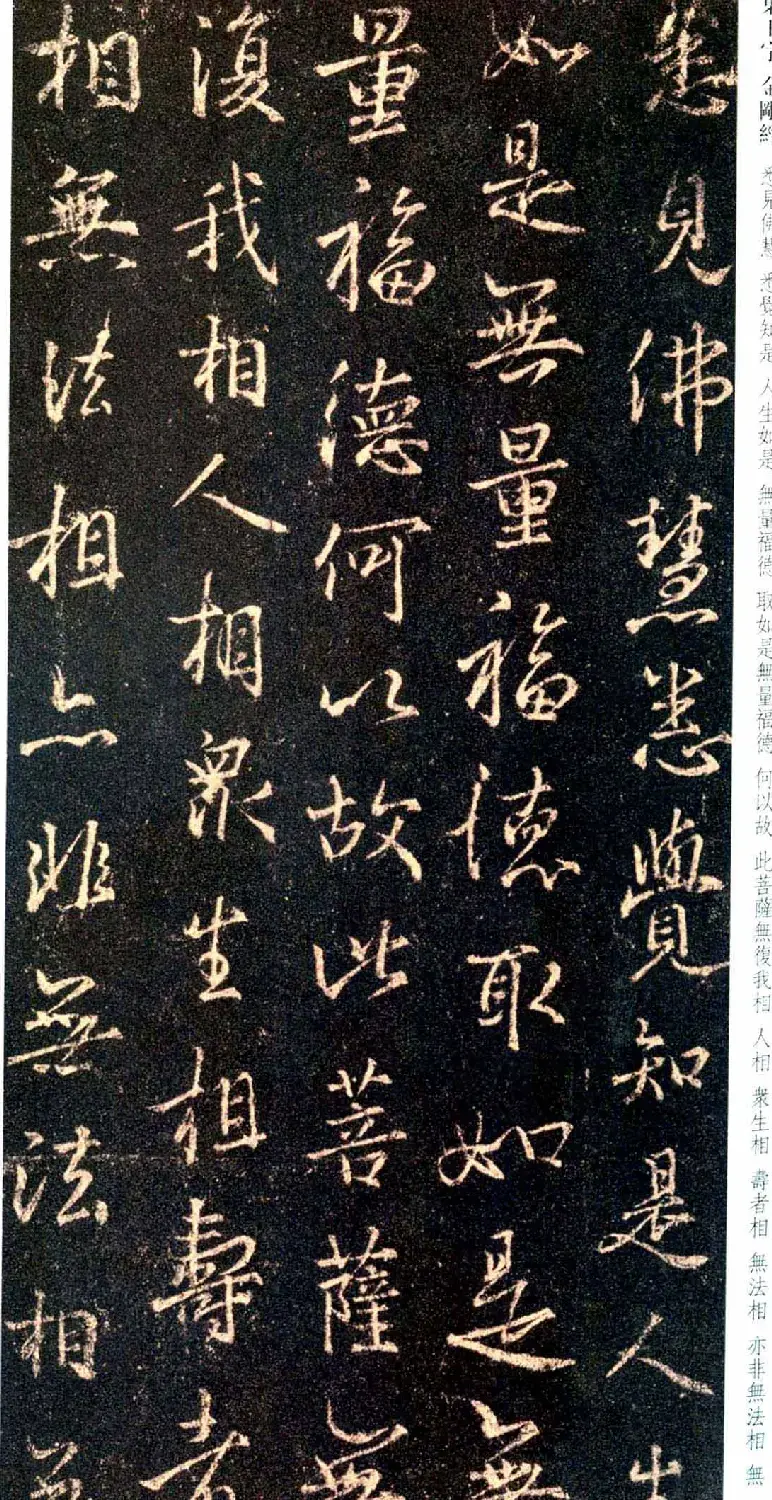 金剛經 悉見佛慧 悉覺知是 人生如是 無量福德 取如是無量福德 何以故 此菩薩無復我相 人相 衆生相 壽者相 無法相 亦非無法相 無
悉見佛慧悉覺知是人生
如是無量福德取如是無
量福德何以故此菩薩無
復我相人相衆生相壽者
相無法相亦非無法相